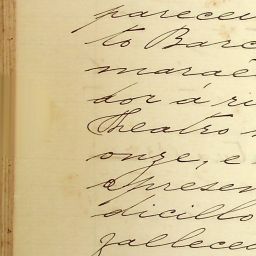 pareceu
to Barc
maraê
dor á ri
Theatro
onze, e
apresen
dicillo
falleceu